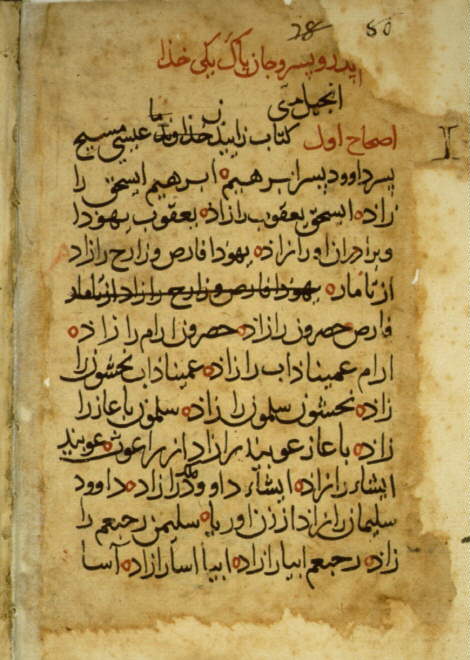 28 50
اپدر و پسر و جان پاک یکی خذا
انجیل متی
اصحاح اول کتاب زاییدن خذاوند ما عیسی مسیح
پسر داوود پسر ابرهیم ابرهیم اسحق را
زاد اسحق یعقوب را زاد یعقوب یهودا
و برادران او را زاد یهودا فارص و زارح را زاد
از تامار یهودا فارص و زارح را زاد از تامار
فارص حصرون را زاد حصرون ارام را زاد
ارام عمیناداب را زاد عمیناداب نحشون را
زاد نحشون سلمون را زاد سلمون باعاز را
زاد باعاز عوبید را زاد از راعوث عوبید
ایشاء را زاد ایشاء داوود ملک را زاد داوود
سلیمان را زاد از زن اوریا سلیمن رحبعم را
زاد رحبعم ابیا را زاد ابیا اسا را زاد آسا